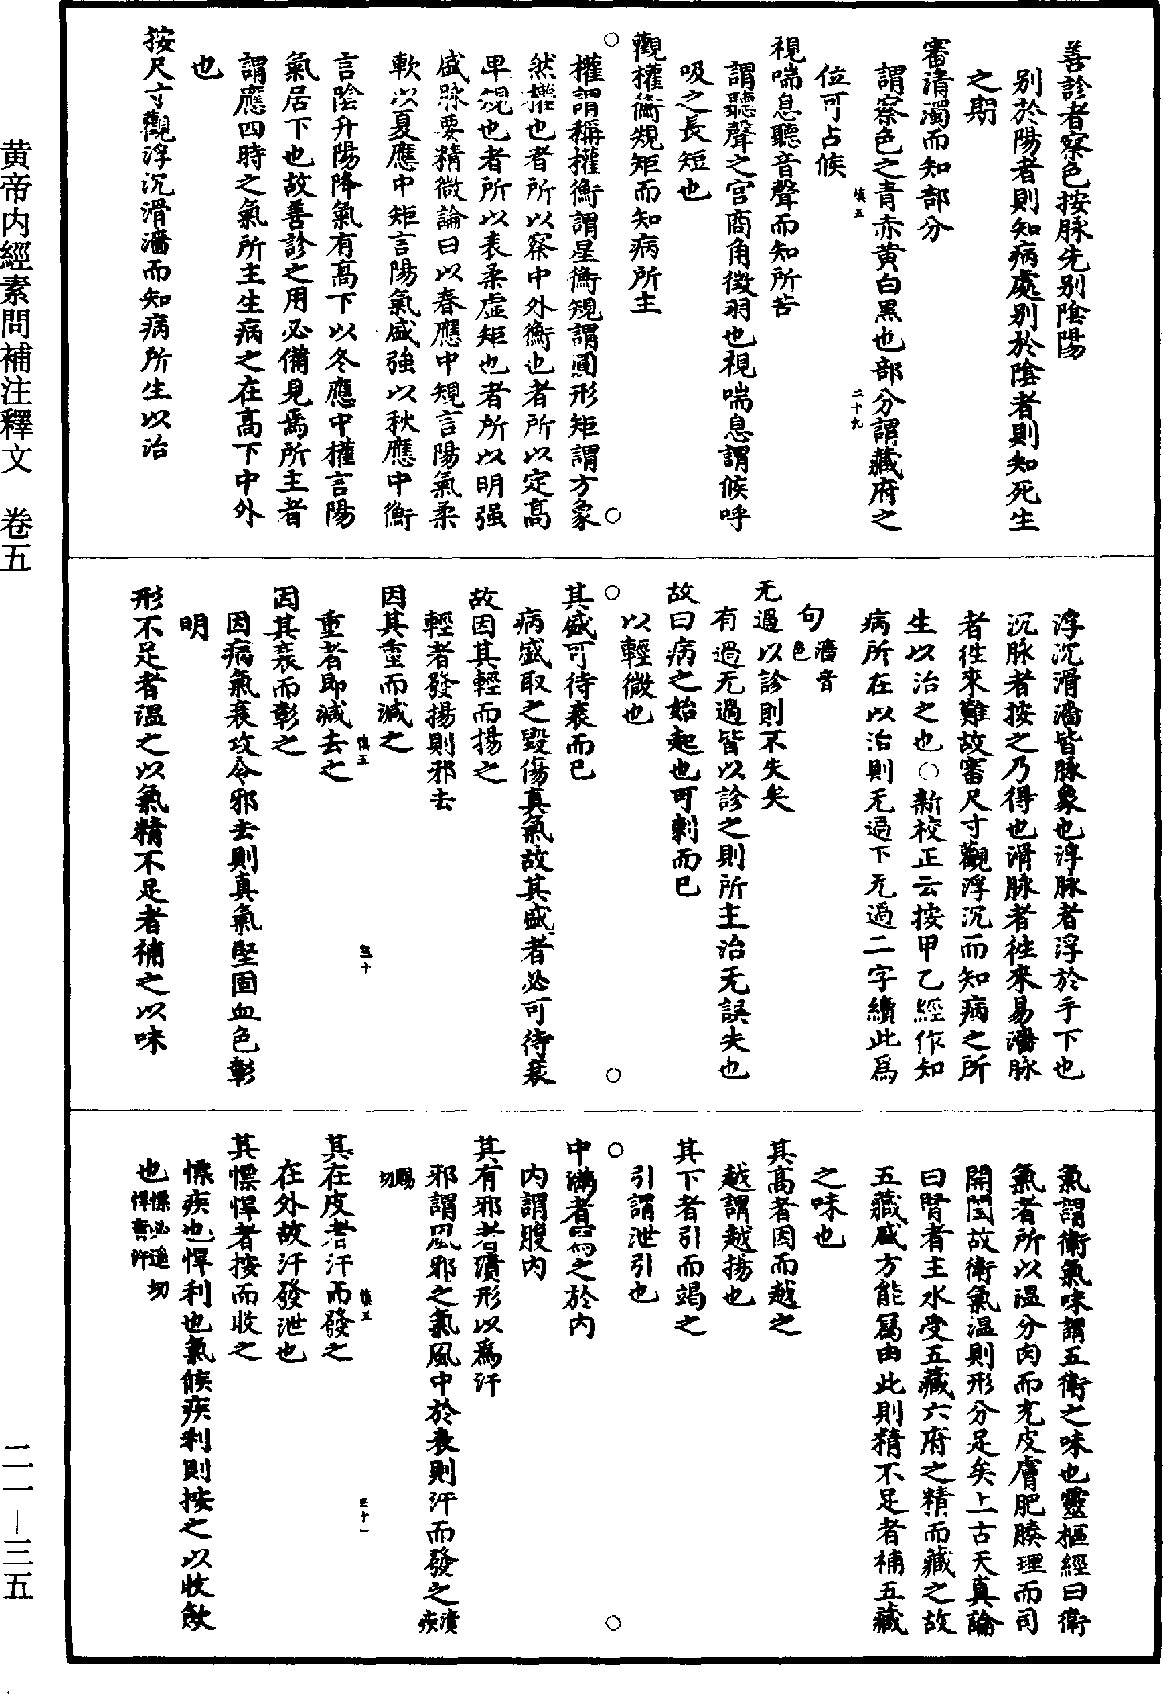 善診者察色按脉先别陰陽
别於陽者則知病處别於陰者則知死生
之期
審清濁而知部分
謂察色之青赤黄白黑也部分謂藏府之
位可占候
慎五
二十九
視喘息聽音聲而知所苦
謂聽聲之宮商角徵羽也視喘息謂候呼
吸之長短也
觀權衡規矩而知病所主
權謂稱權衡謂星衡規謂圓形矩謂方象
然權也者所以察中外衡也者所以定髙
卑規也者所以表柔虛矩也者所以明强
盛脉要精微論曰以春應中規言陽氣柔
軟以夏應中矩言陽氣盛強以秋應中衡
言陰升陽降氣有髙下以冬應中權言陽
氣居下也故善診之用必備見焉所主者
謂應四時之氣所主生病之在髙下中外
也
按尺寸觀浮沉滑濇而知病所生以治
浮沉滑濇皆脉象也浮脉者浮於手下也
沉脉者按之乃得也滑脉者徃來易濇脉
者徃來難故審尺寸觀浮沉而知病之所
生以治之也○新校正云按甲乙經作知
病所在以治則无過下无過二字續此爲
句
濇音
色
无過以診則不失矣
有過无過皆以診之則所主治无誤失也
故曰病之始起也可刺而已
以輕微也
其盛可待衰而已
病盛取之毀傷真氣故其盛者必可待衰
故因其輕而揚之
輕者發揚則邪去
因其重而減之
慎五
三十
重者即減去之
因其衰而彰之
因病氣衰攻令邪去則真氣堅固血色彰
明
形不足者溫之以氣精不足者補之以味
氣謂衛氣味謂五衛之味也靈樞經曰衛
氣者所以溫分肉而充皮膚肥腠理而司
開闔故衛氣溫則形分足矣上古天真論
曰腎者主水受五藏六府之精而藏之故
五藏盛方能寫由此則精不足者補五藏
之味也
其髙者因而越之
越謂越揚也
其下者引而竭之
引謂泄引也
中滿者寫之於内
内謂腹内
其有邪者漬形以爲汗
邪謂風邪之氣風中於表則汗而發之
漬疾
賜切
慎五
三十一
其在皮者汗而發之
在外故汗發泄也
其慓悍者按而收之
慓疾也悍利也氣候疾利則按之以收歛
也
慓必遥切
悍音汗
黄帝内經素問補注釋文　卷五
二一—三五